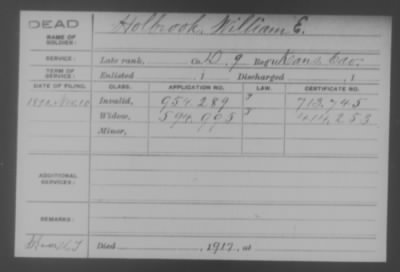 DEAD
NAME OF SOLDIER: Holbrook, William E.
SERVICE: Late rank, Co. D, 9 Reg't Kans Cav.
TERM OF SERVICE: Enlisted , 1 Discharged , 1
DATE OF FILING. CLASS. APPLICATION NO. LAW. CERTIFICATE NO.
Invalid, 954.289 713.745
Widow, 594.995
Minor,
ADDITIONAL SERVICES:
REMARKS:
Died , 1917, at